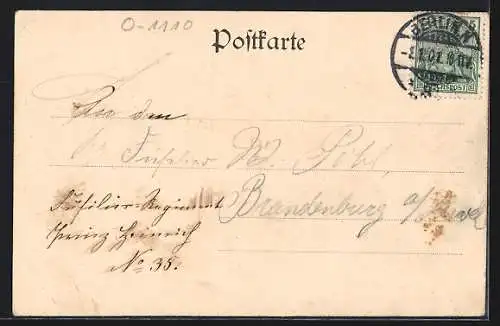 O-1110
Postkarte
BERLIN
An den
Füsilier W. Pohl,
Brandenburg a/Havel
Füsilier-Regiment
Prinz Heinrich
No 35.